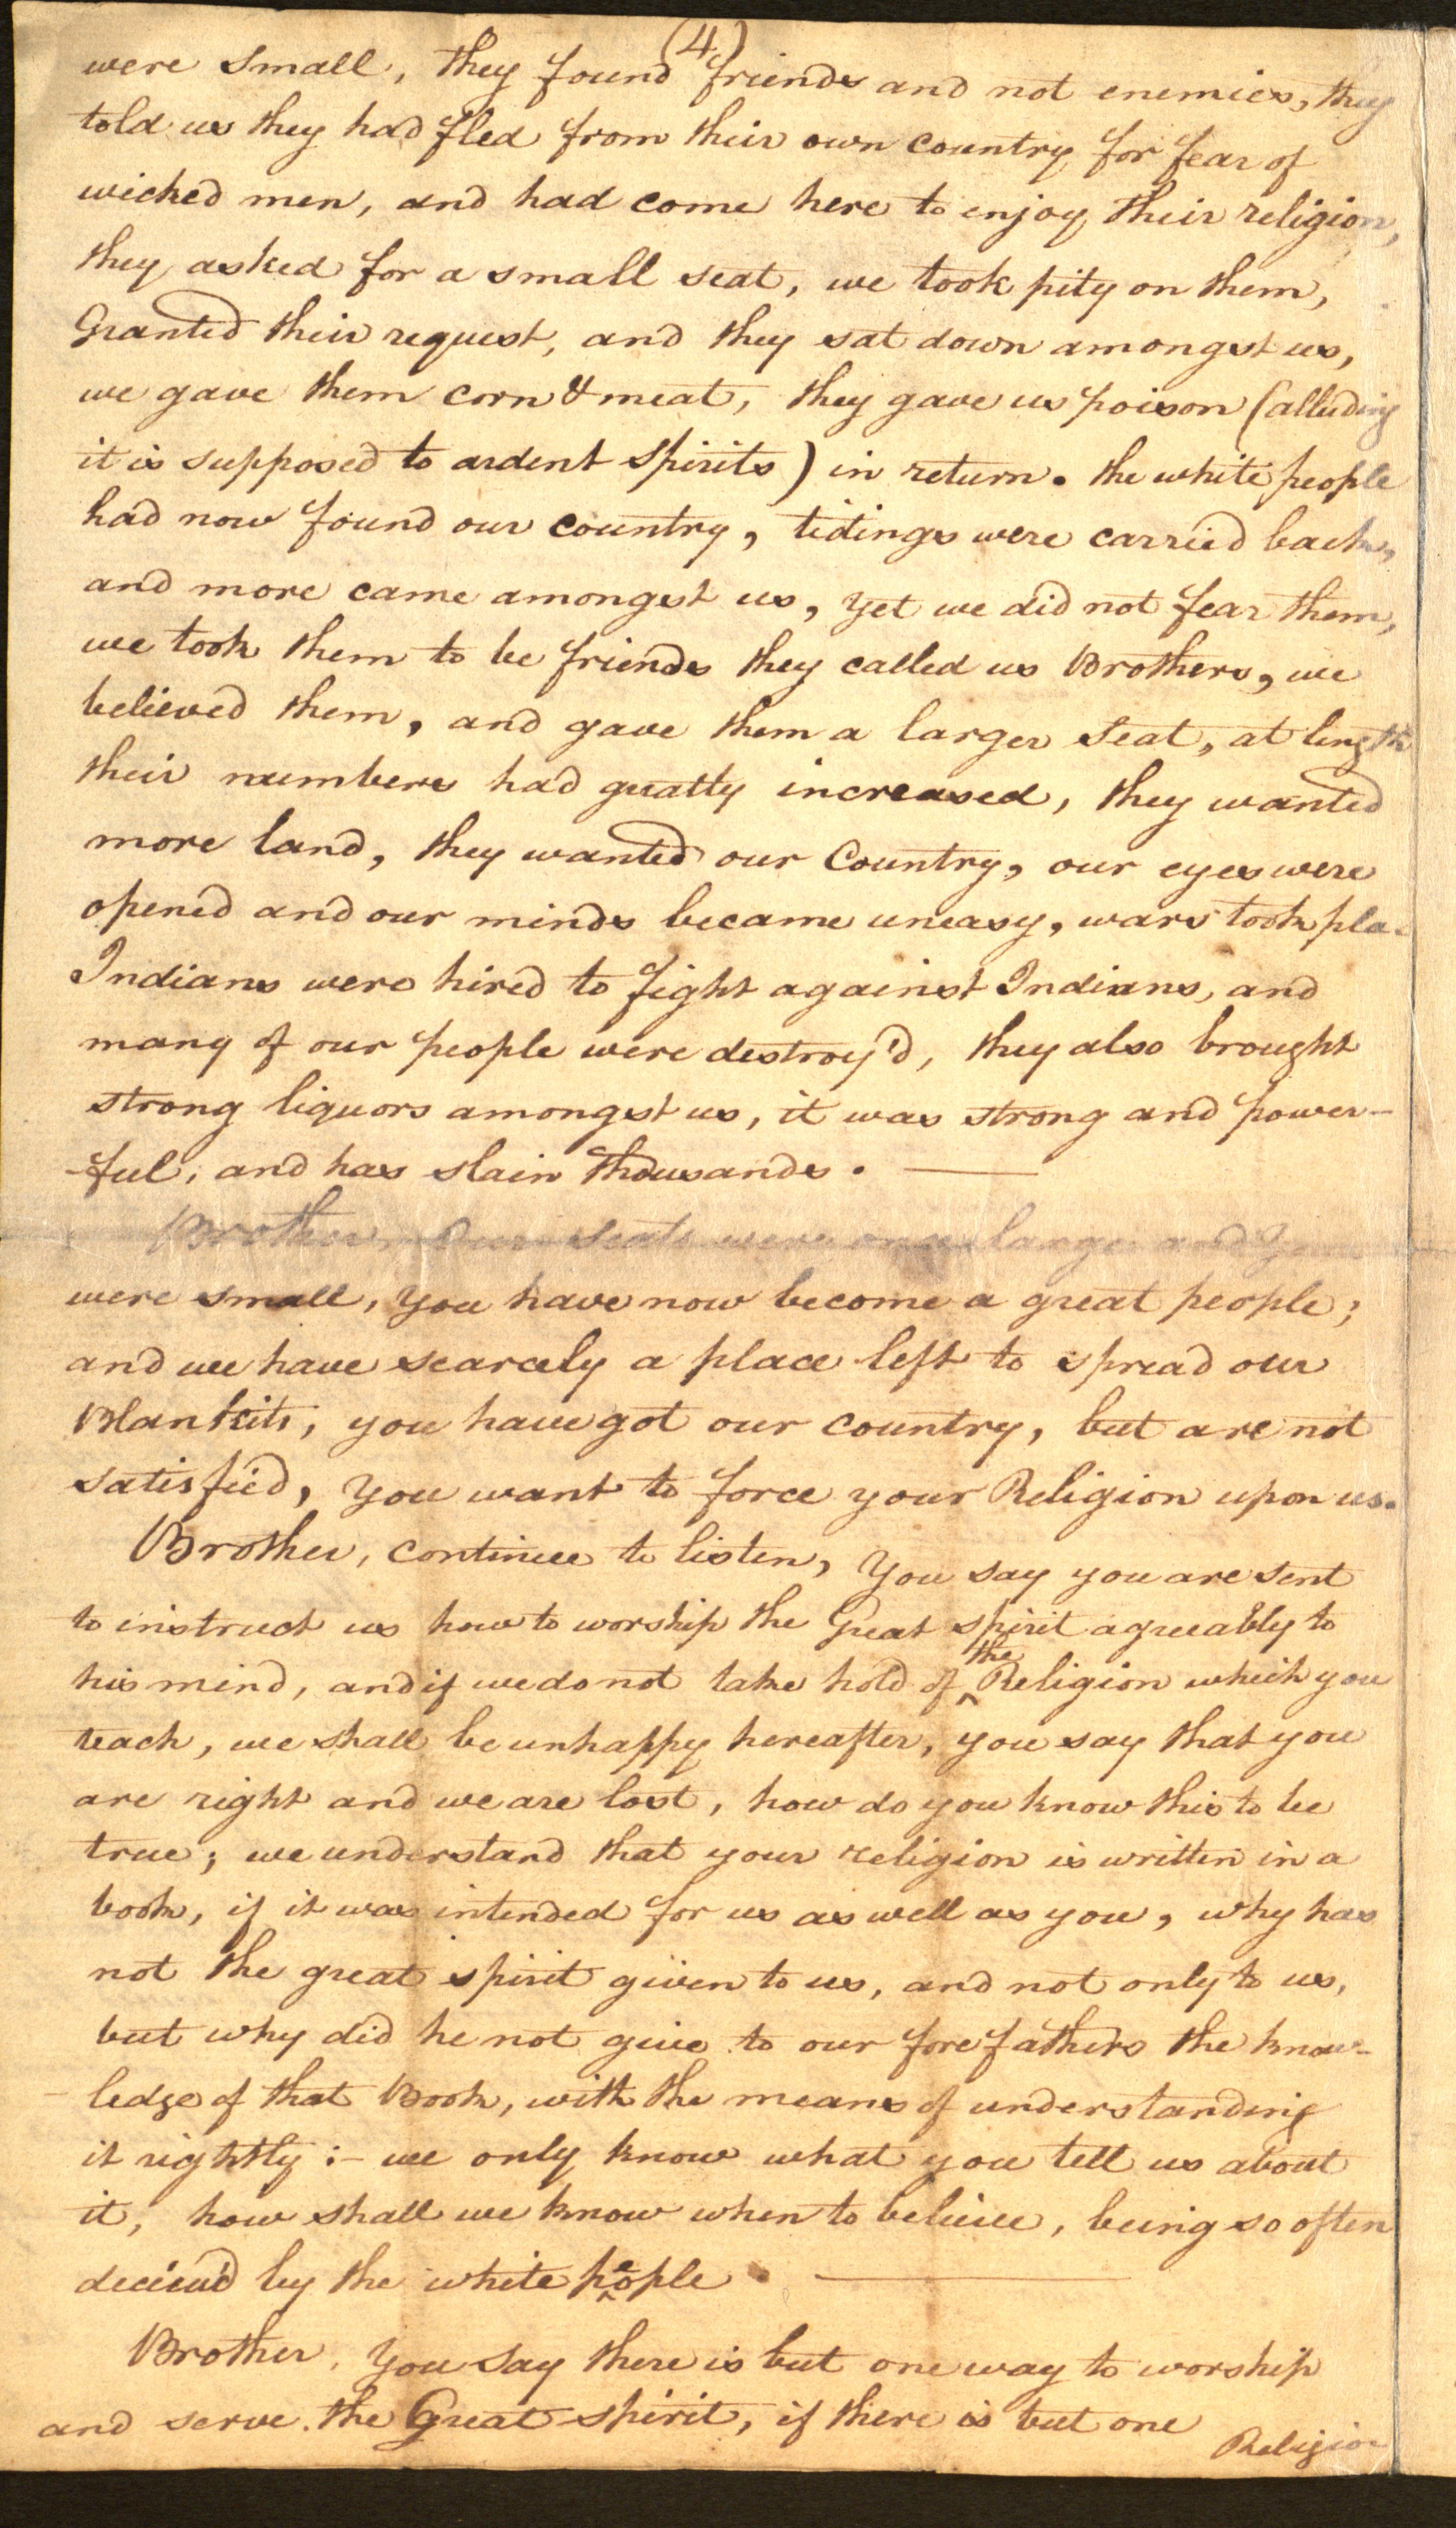 (4)
were small, they found friends and not enemies, they
told us they had fled from their own country for fear of
wicked men, and had come here to enjoy their religion,
they asked for a small seat, we took pity on them,
Granted their request, and they sat down amongst us,
we gave them corn & meat, they gave us poison (alluding
it is supposed to ardent spirits) in return. the white people
had now found our country, tidings were carried back,
and more came amongst us, yet we did not fear them,
we took them to be friends they called us Brothers, we
believed them, and gave them a larger seat, at length
their numbers had greatly increased, they wanted
more land, they wanted our Country, our eyes were
opened and our minds became uneasy, wars took pla
Indians were hired to fight against Indians, and
many of our people were destroy'd, they also brought
strong liquors amongst us, it was strong and power-
-ful, and has slain thousands.
Brother, Our seats were once large and yours
were small, you have now become a great people;
and we have scarcely a place left to spread our
Blankits; you have got our country, but are not
satisfied, you want to force your Religion upon us.
Brother, continue to listen, You say you are sent
to instruct us how to worship the Great spirit agreeably to
his mind, and if we do not take hold of the Religion which you
teach, we shall be unhappy hereafter, you say that you
are right and we are lost, how do you know this to be
true; we understand that your religion is written in a
book, if it was intended for us as well as you, why has
not the great spirit given to us, and not only to us,
but why did he not give to our forefathers the know-
-ledge of that Book, with the means of understanding
it rightly:- we only know what you tell us about
it, how shall we know when to believe, being so often
deceiv'd by the white people.
Brother, You say there is but one way to worship
and serve the Great spirit, if there is but one
Religion